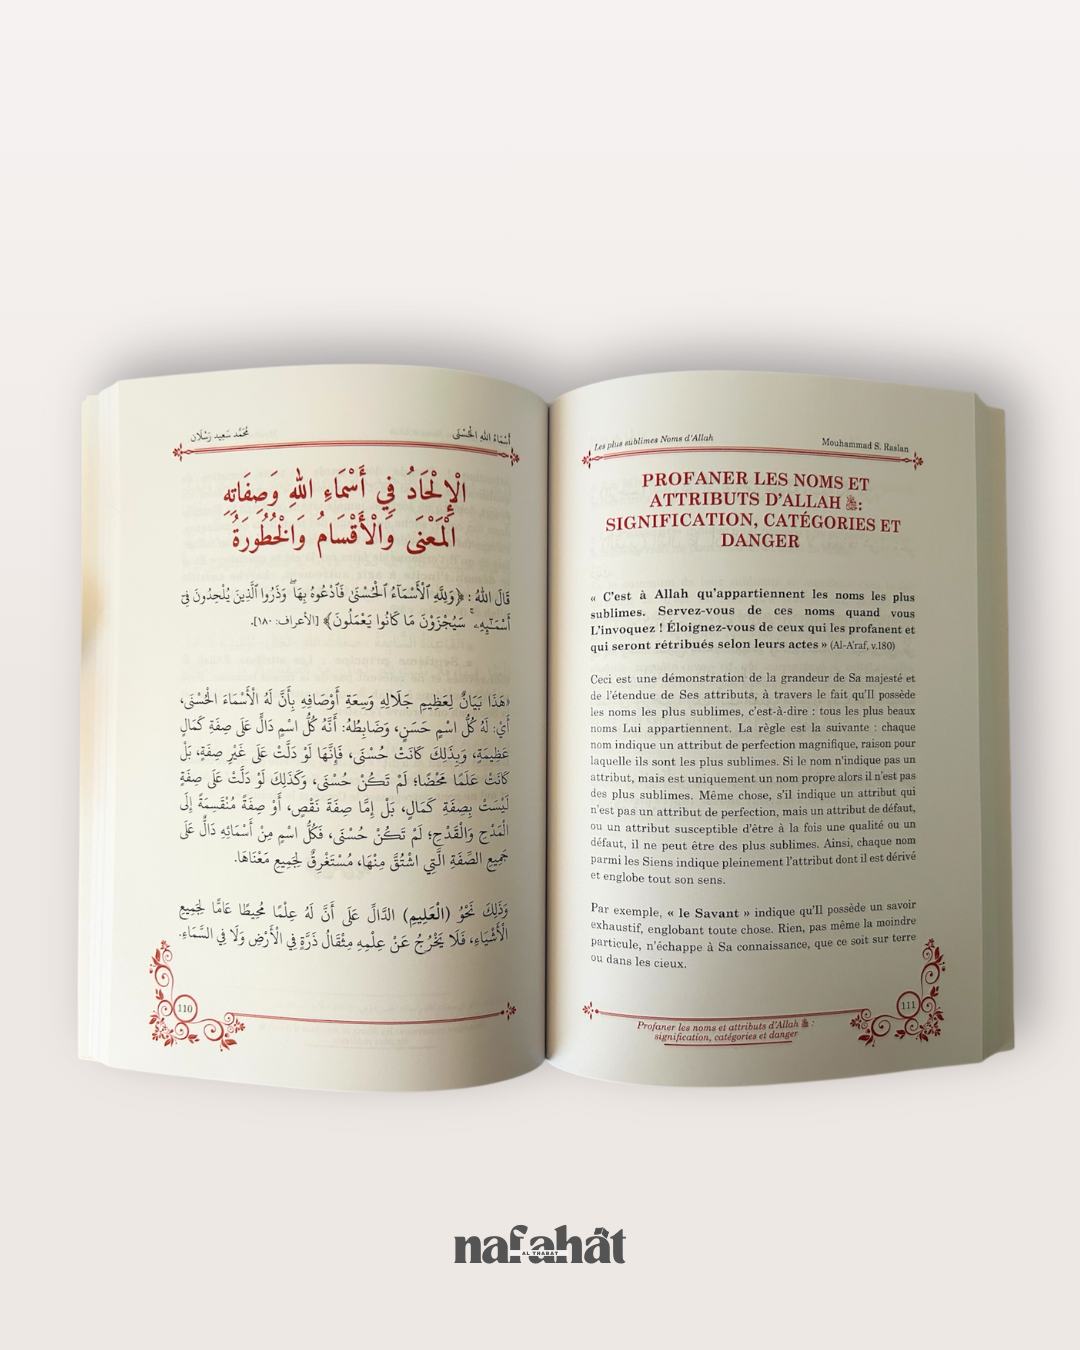 أَسْمَاءُ اللهِ الْحُسْنَى
مُحَمَّد سَعِيد رَسْلَان
الْإِلْحَادُ فِي أَسْمَاءِ اللهِ وَصِفَاتِهِ
الْمَعْنَى وَالْأَقْسَامُ وَالْخُطُورَةُ
قَالَ اللهُ : ﴿وَلِلَّهِ ٱلْأَسْمَآءُ ٱلْحُسْنَىٰ فَٱدْعُوهُ بِهَاۖ وَذَرُوا۟ ٱلَّذِينَ يُلْحِدُونَ فِىٓ
أَسْمَـٰٓئِهِۦۚ سَيُجْزَوْنَ مَا كَانُوا۟ يَعْمَلُونَ﴾ [الأعراف: ١٨٠].
«هَذَا بَيَانٌ لِعَظِيمِ جَلَالِهِ وَسِعَةِ أَوْصَافِهِ بِأَنَّ لَهُ الْأَسْمَاءَ الْحُسْنَى،
أَيْ: لَهُ كُلُّ اسْمٍ حَسَنٍ، وَضَابِطُهُ: أَنَّهُ كُلُّ اسْمٍ دَالٍّ عَلَى صِفَةِ كَمَالٍ
عَظِيمَةٍ، وَبِذَلِكَ كَانَتْ حُسْنَى، فَإِنَّهَا لَوْ دَلَّتْ عَلَى غَيْرِ صِفَةٍ، بَلْ
كَانَتْ عَلَمًا مَحْضًا؛ لَمْ تَكُنْ حُسْنَى، وَكَذَلِكَ لَوْ دَلَّتْ عَلَى صِفَةٍ
لَيْسَتْ بِصِفَةِ كَمَالٍ، بَلْ إِمَّا صِفَةَ نَقْصٍ، أَوْ صِفَةً مُنْقَسِمَةً إِلَى
الْمَدْحِ وَالْقَدْحِ؛ لَمْ تَكُنْ حُسْنَى، فَكُلُّ اسْمٍ مِنْ أَسْمَائِهِ دَالٌّ عَلَى
جَمِيعِ الصِّفَةِ الَّتِي اشْتُقَّ مِنْهَا، مُسْتَغْرِقٌ لِجَمِيعِ مَعْنَاهَا.
وَذَلِكَ نَحْوُ (الْعَلِيمِ) الدَّالِّ عَلَى أَنَّ لَهُ عِلْمًا مُحِيطًا عَامًّا لِجَمِيعِ
الْأَشْيَاءِ، فَلَا يَخْرُجُ عَنْ عِلْمِهِ مِثْقَالُ ذَرَّةٍ فِي الْأَرْضِ وَلَا فِي السَّمَاءِ.
110
Les plus sublimes Noms d'Allah
Mouhammad S. Raslan
PROFANER LES NOMS ET
ATTRIBUTS D'ALLAH ﷻ:
SIGNIFICATION, CATÉGORIES ET
DANGER
« C'est à Allah qu'appartiennent les noms les plus
sublimes. Servez-vous de ces noms quand vous
L'invoquez ! Éloignez-vous de ceux qui les profanent et
qui seront rétribués selon leurs actes » (Al-A'raf, v.180)
Ceci est une démonstration de la grandeur de Sa majesté et
de l'étendue de Ses attributs, à travers le fait qu'Il possède
les noms les plus sublimes, c'est-à-dire : tous les plus beaux
noms Lui appartiennent. La règle est la suivante : chaque
nom indique un attribut de perfection magnifique, raison pour
laquelle ils sont les plus sublimes. Si le nom n'indique pas un
attribut, mais est uniquement un nom propre alors il n'est pas
des plus sublimes. Même chose, s'il indique un attribut qui
n'est pas un attribut de perfection, mais un attribut de défaut,
ou un attribut susceptible d'être à la fois une qualité ou un
défaut, il ne peut être des plus sublimes. Ainsi, chaque nom
parmi les Siens indique pleinement l'attribut dont il est dérivé
et englobe tout son sens.
Par exemple, « le Savant » indique qu'Il possède un savoir
exhaustif, englobant toute chose. Rien, pas même la moindre
particule, n'échappe à Sa connaissance, que ce soit sur terre
ou dans les cieux.
Profaner les noms et attributs d'Allah ﷻ :
signification, catégories et danger
111
nafahât
AL THABAT